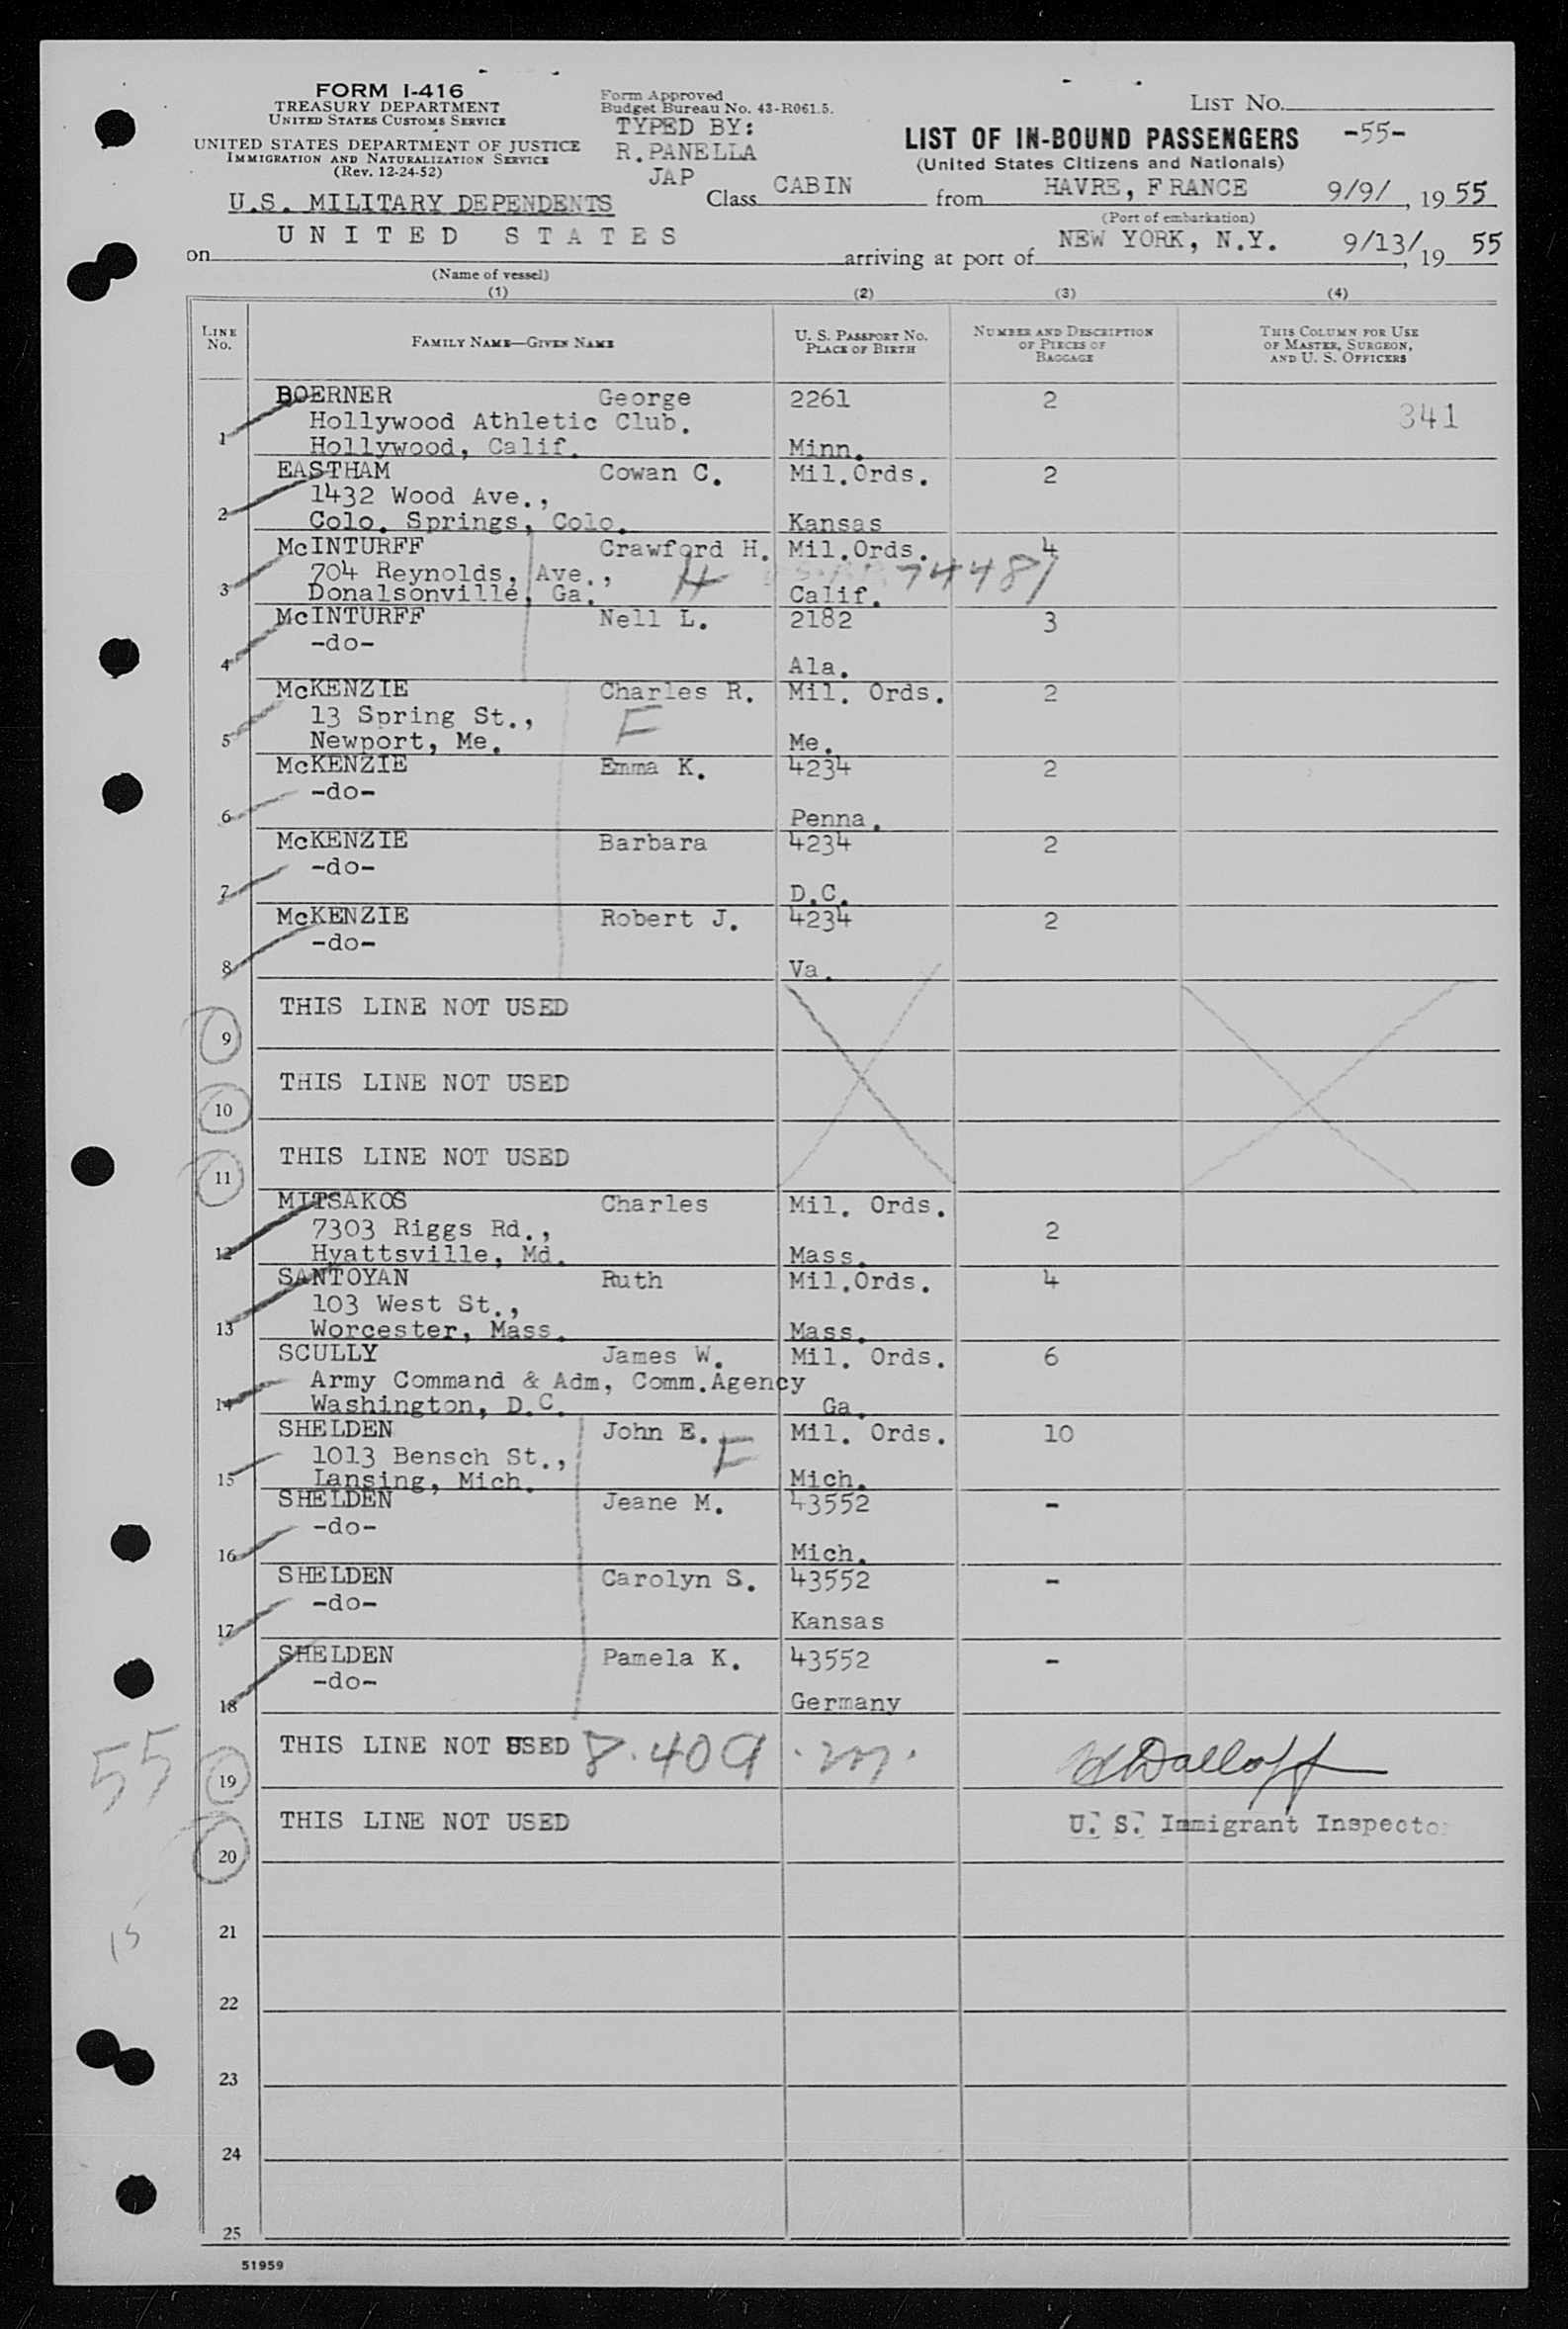 FORM I-416
TREASURY DEPARTMENT
UNITED STATES CUSTOMS SERVICE
UNITED STATES DEPARTMENT OF JUSTICE
IMMIGRATION AND NATURALIZATION SERVICE
(Rev. 12-24-52)
Form Approved
Budget Bureau No. 43-R061.5.
TYPED BY:
R.PANELLA
JAP
LIST NO.
LIST OF IN-BOUND PASSENGERS -55-
(United States Citizens and Nationals)
U.S. MILITARY DEPENDENTS Class CABIN from HAVRE, FRANCE 9/9/, 1955
(Port of embarkation)
on UNITED STATES arriving at port of NEW YORK, N.Y. 9/13/, 19 55
(Name of vessel)
(1) (2) (3) (4)
LINE NO. FAMILY NAME—GIVEN NAME U. S. PASSPORT NO. PLACE OF BIRTH NUMBER AND DESCRIPTION OF PIECES OF BAGGAGE THIS COLUMN FOR USE OF MASTER, SURGEON, AND U. S. OFFICERS
BOERNER George 2261 2
Hollywood Athletic Club. 341
1 Hollywood, Calif. Minn.
EASTHAM Cowan C. Mil.Ords. 2
1432 Wood Ave.,
2 Colo. Springs, Colo. Kansas
McINTURFF Crawford H. Mil.Ords. 4
704 Reynolds, Ave., H 74487
3 Donalsonville, Ga. Calif.
McINTURFF Nell L. 2182 3
-do-
4 Ala.
McKENZIE Charles R. Mil. Ords. 2
13 Spring St., F
5 Newport, Me. Me.
McKENZIE Emma K. 4234 2
-do-
6 Penna.
McKENZIE Barbara 4234 2
-do-
7 D.C.
McKENZIE Robert J. 4234 2
-do-
8 Va.
THIS LINE NOT USED
9
THIS LINE NOT USED
10
THIS LINE NOT USED
11
MITSAKOS Charles Mil. Ords.
7303 Riggs Rd., 2
12 Hyattsville, Md. Mass.
SANTOYAN Ruth Mil.Ords. 4
103 West St.,
13 Worcester, Mass. Mass.
SCULLY James W. Mil. Ords. 6
Army Command & Adm, Comm.Agency
14 Washington, D.C. Ga.
SHELDEN John E. F Mil. Ords. 10
1013 Bensch St.,
15 Lansing, Mich. Mich.
SHELDEN Jeane M. 43552 -
-do-
16 Mich.
SHELDEN Carolyn S. 43552 -
-do-
17 Kansas
SHELDEN Pamela K. 43552 -
-do-
18 Germany
THIS LINE NOT USED 8.409.m.
55 19
THIS LINE NOT USED U. S. Immigrant Inspector
20
15 21
22
23
24
25
51959